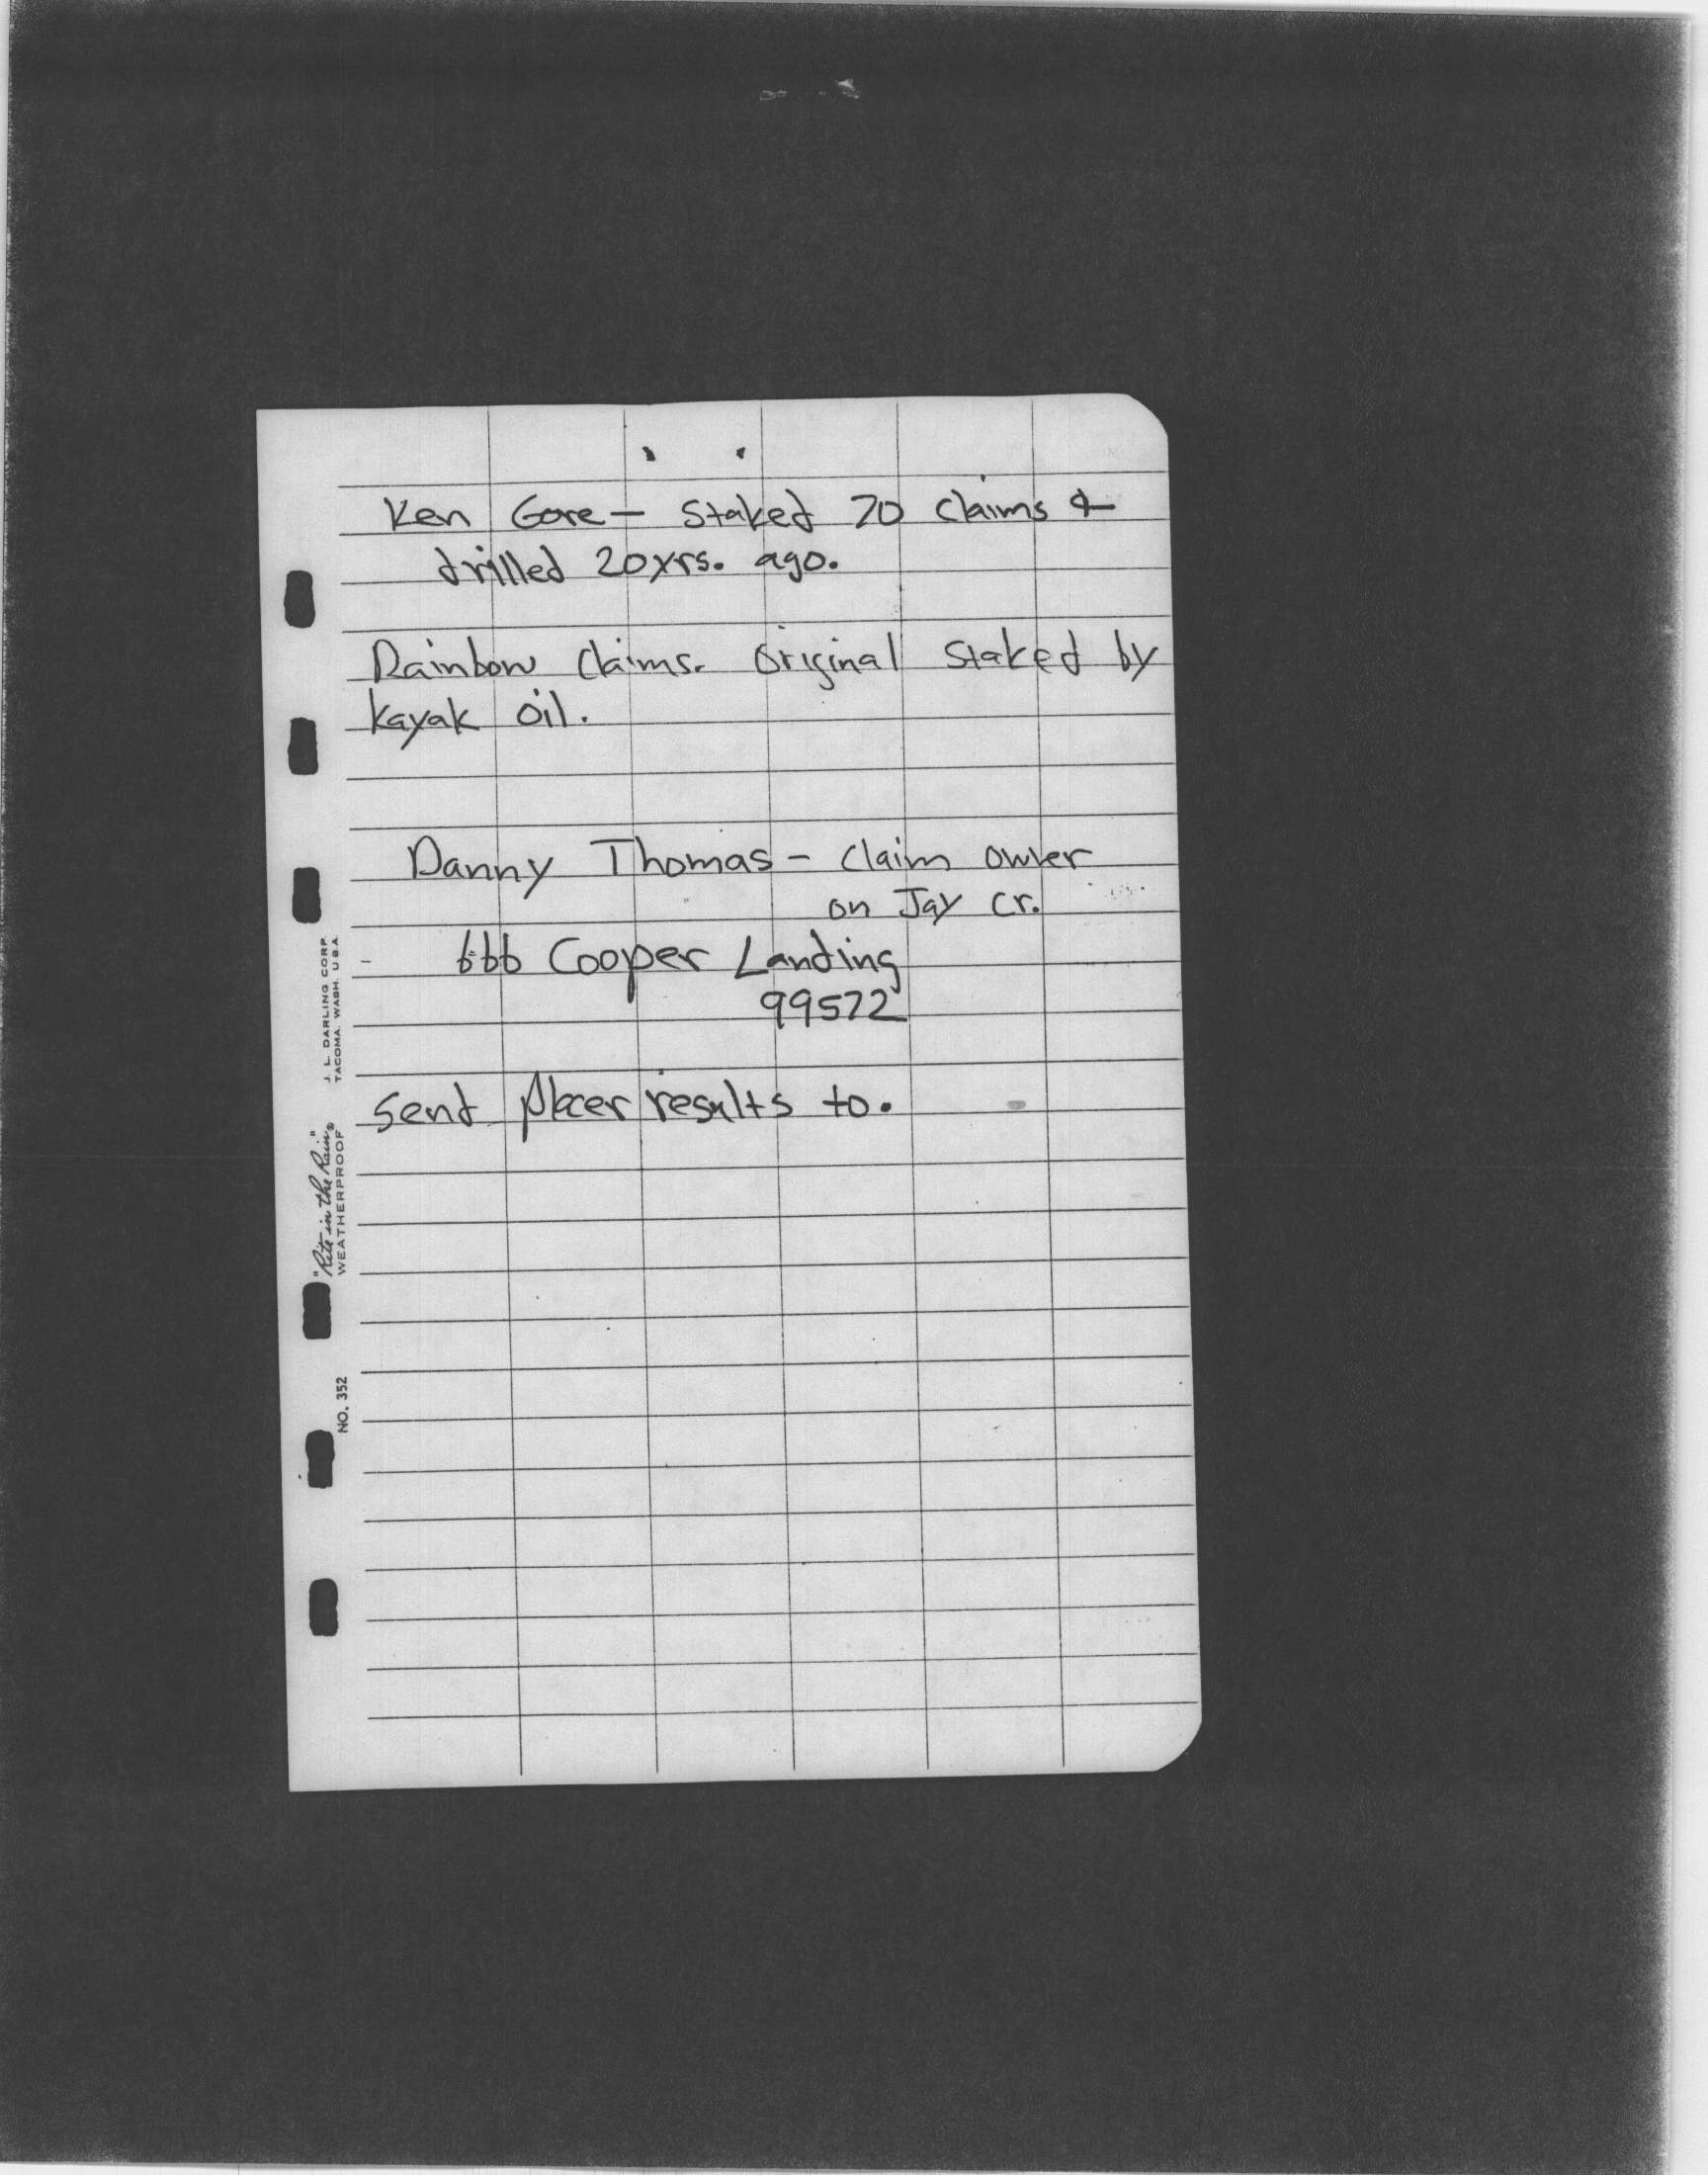 Ken Gore — Staked 70 Claims &
drilled 20 yrs. ago.
Rainbow Claims. Original Staked by
Kayak Oil.
Danny Thomas - Claim owner
on Jay Cr.
666 Cooper Landing
99572
Send placer results to.
J. L. DARLING CORP.
TACOMA, WASH. U.S.A.
"Rite in the Rain"®
WEATHERPROOF
NO. 352